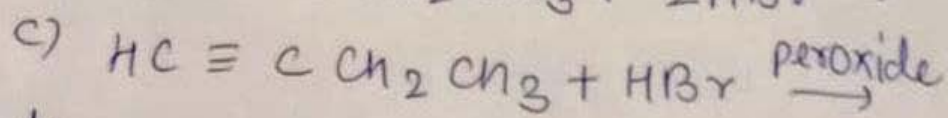 c) HC ≡ C CH2 CH3 + HBr peroxide →